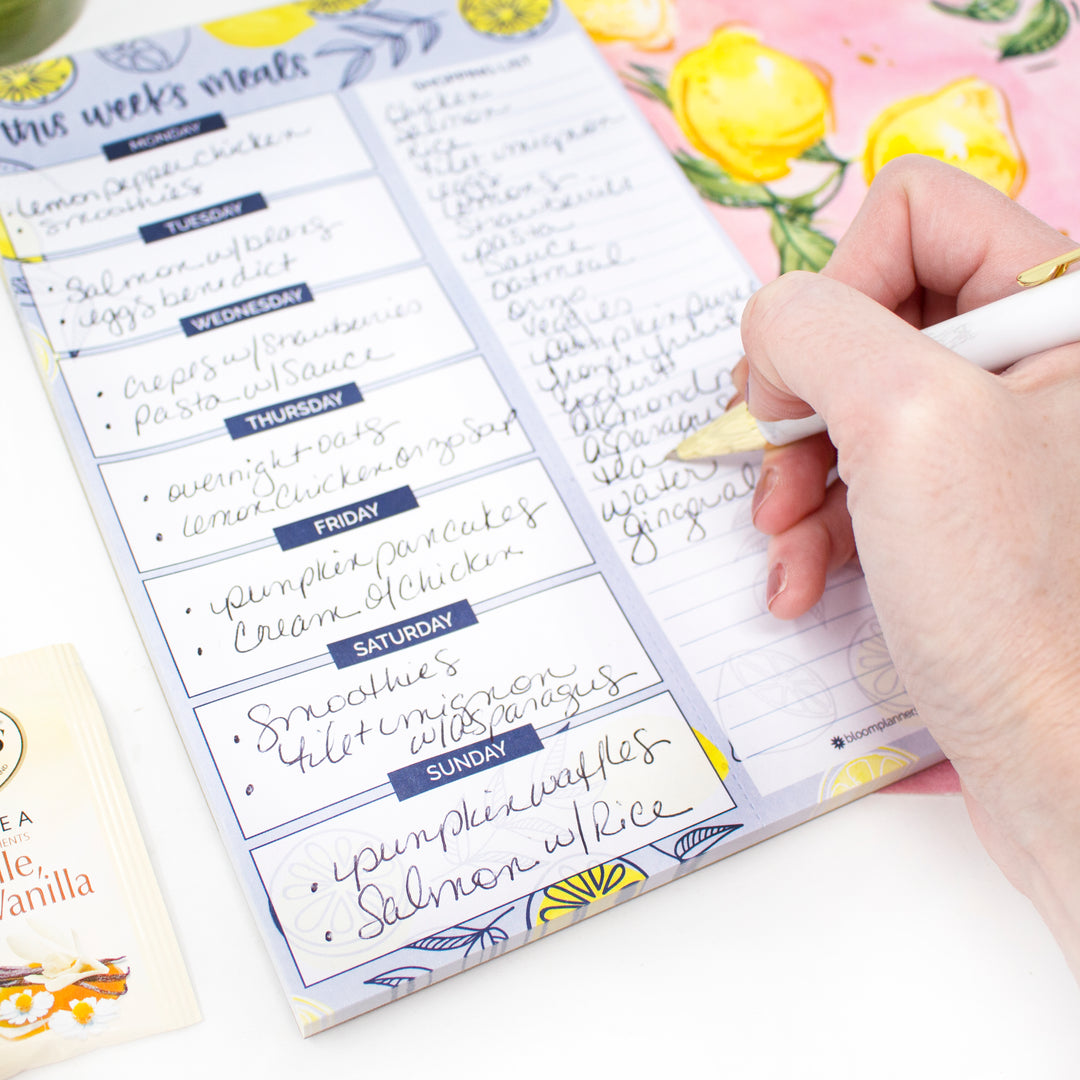 this weeks meals
MONDAY
lemon pepper chicken
smoothies
TUESDAY
Salmon w/beans
eggs benedict
WEDNESDAY
crepes w/strawberries
pasta w/sauce
THURSDAY
overnight oats
lemon chicken orzo soup
FRIDAY
pumpkin pancakes
Cream of Chicken
SATURDAY
Smoothies
filet mignon
w/asparagus
SUNDAY
pumpkin waffles
Salmon w/Rice
SHOPPING LIST
chicken
salmon
rice
filet mignon
eggs
lemons
strawberries
pasta
sauce
oatmeal
orzo
veggies
pumpkin pure
frozen fruit
yogurt
almonds
asparagus
tea
water
ginger al
bloomplanners
Vanilla